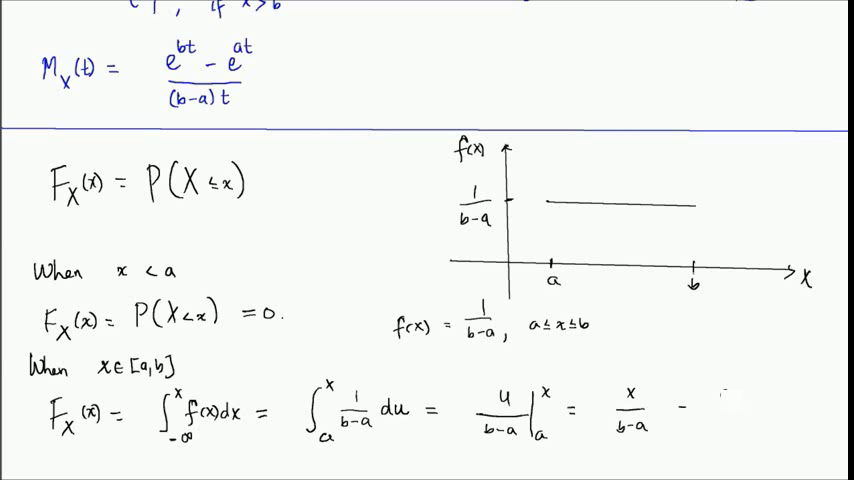 1, if x>b
M_X(t) = (e^{bt} - e^{at}) / ((b-a)t)
F_X(x) = P(X ≤ x)
f(x)
1/(b-a)
a b X
When x < a
F_X(x) = P(X<x) = 0.
f(x) = 1/(b-a), a≤x≤b
When x∈[a,b]
F_X(x) = ∫_{-∞}^{x} f(x)dx = ∫_{a}^{x} 1/(b-a) du = u/(b-a) |_{a}^{x} = x/(b-a) -